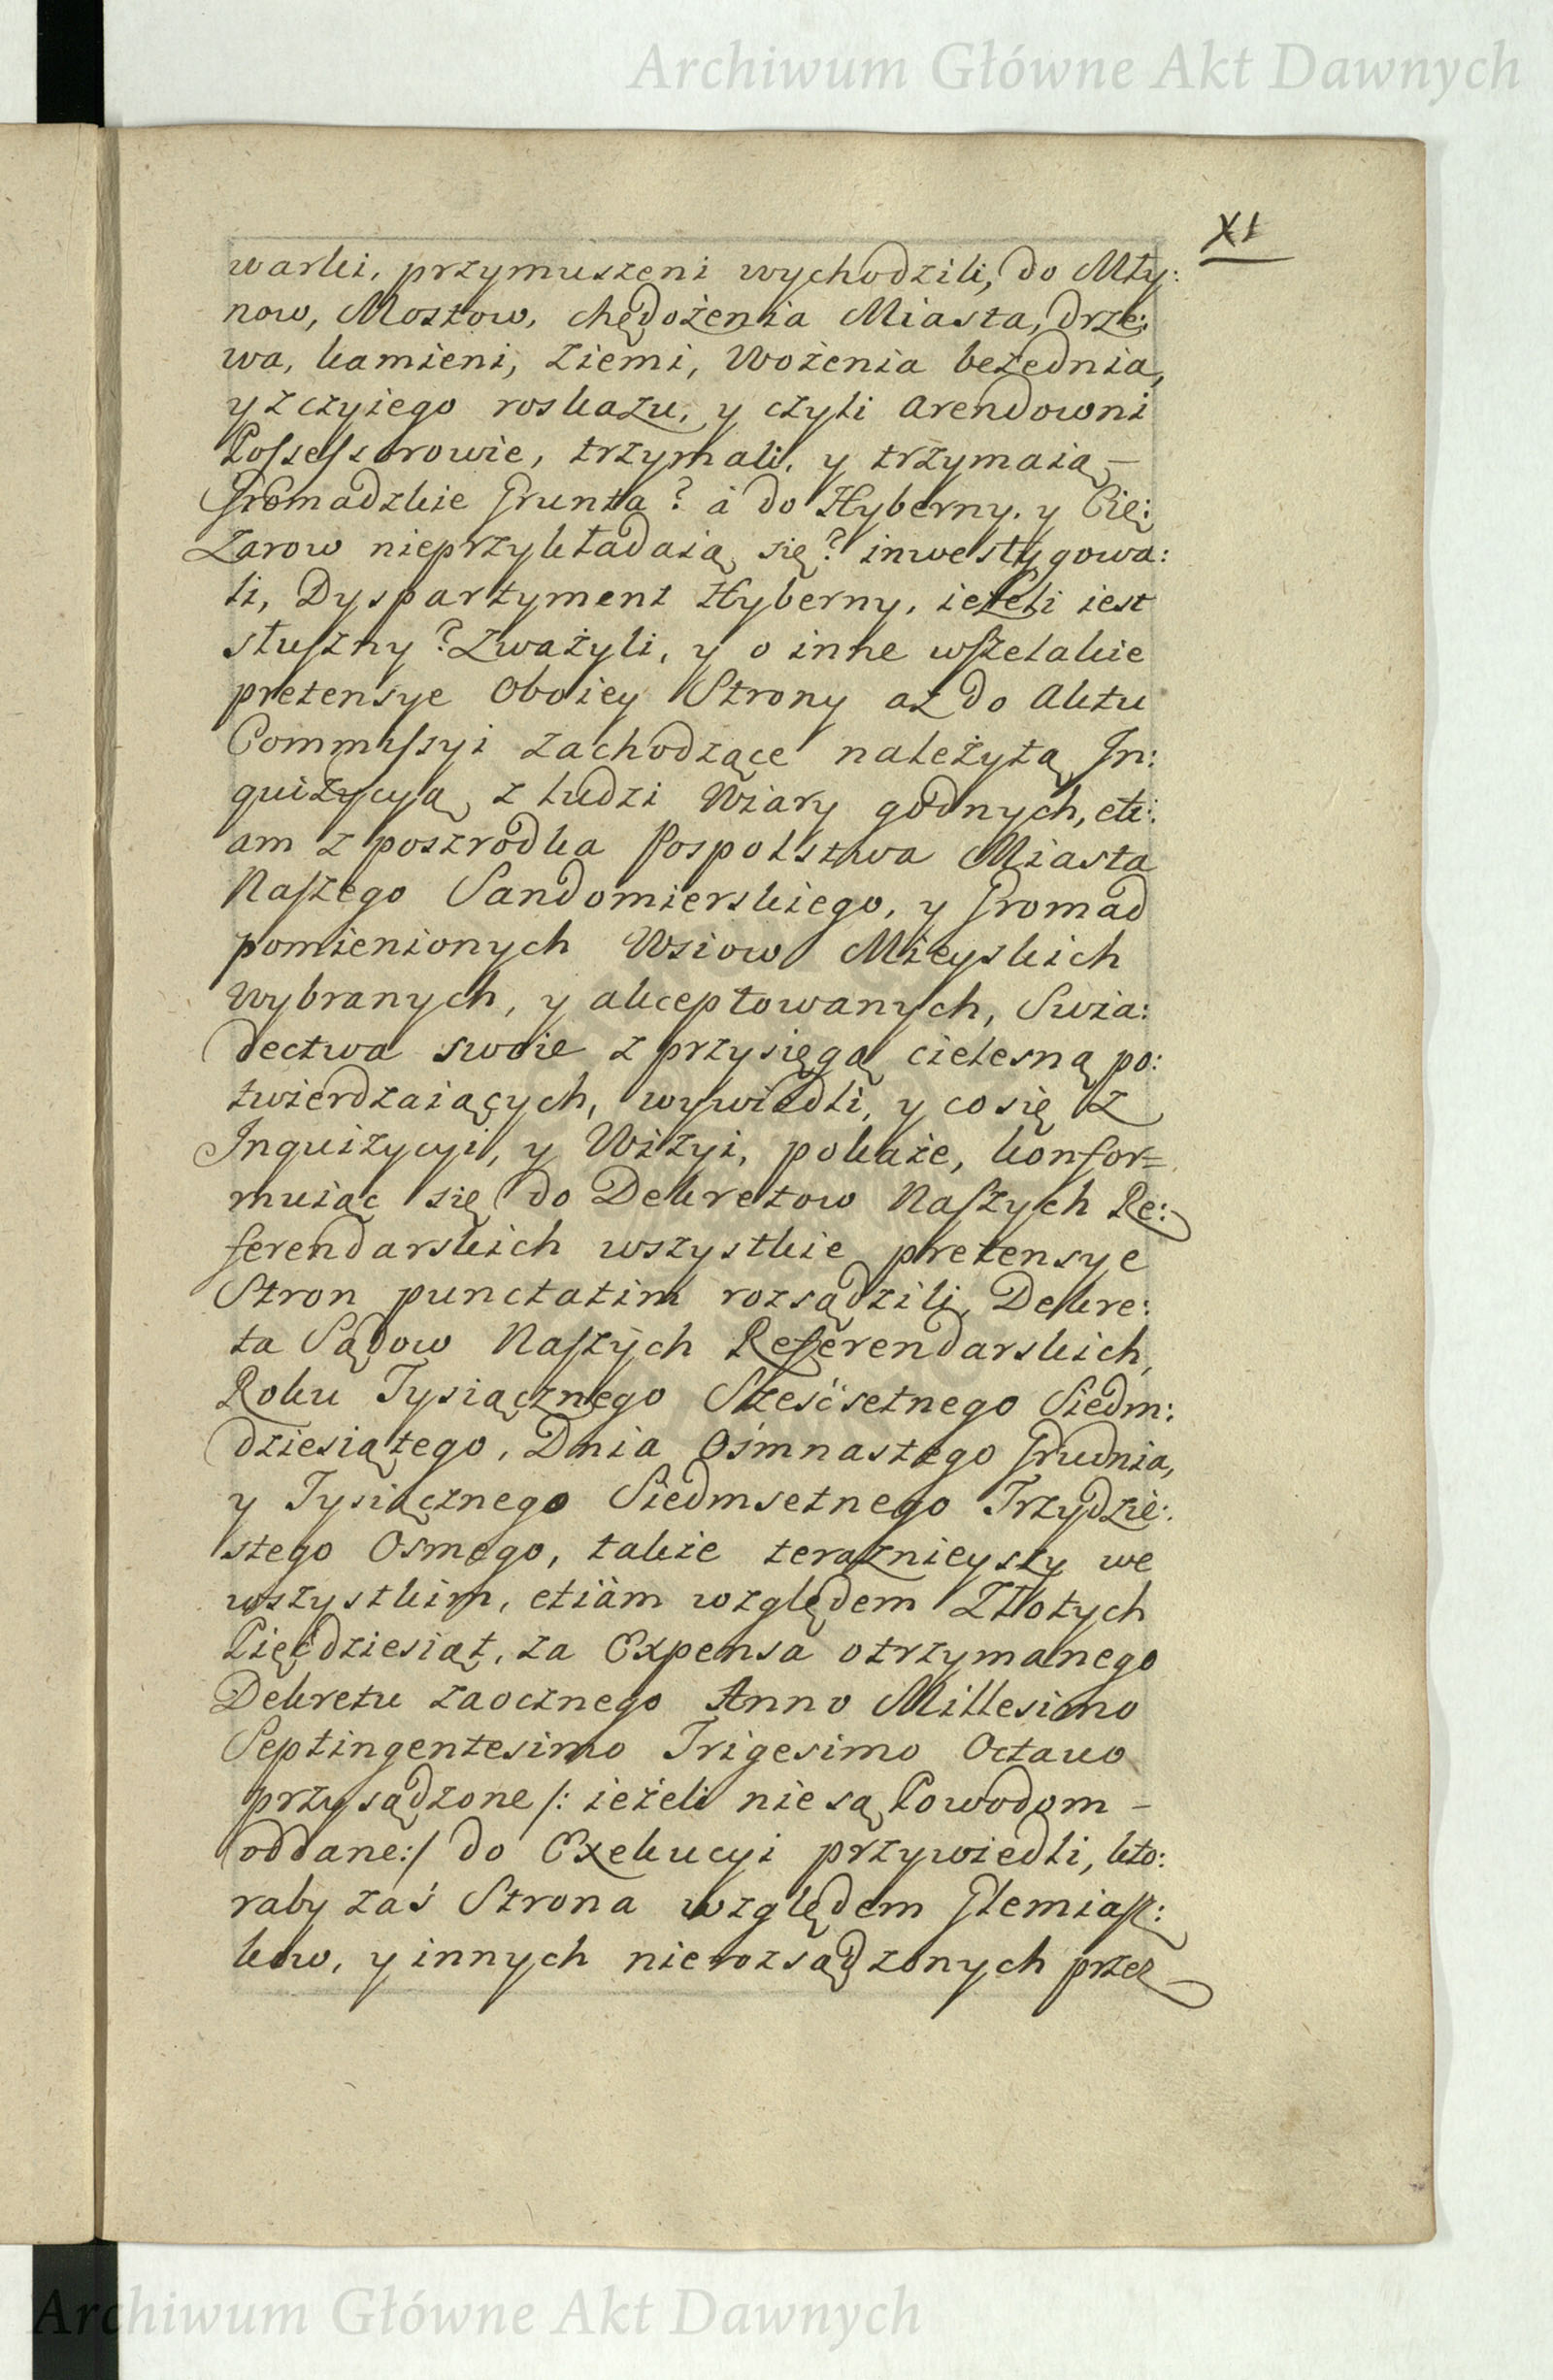 Archiwum Główne Akt Dawnych
XI
warki, przymuszeni wychodzili, do Mły:
now, Mostow, chędożenia Miasta, drze:
wa, kamieni, ziemi, Wożenia bezednia,
y z czyiego roskazu, y czyli arendowni
Possessorowie, trzymali, y trzymaią –
Gromadzkie Grunta? á do Hyberny. y Cię:
zarow nieprzykładaią się? inwestygowa:
li, Dyspartyment Hyberny, ieżeli iest
słuszny? Zważyli, y o inne wszelakie
pretensye Oboiey Strony aż do aktu
Commissyi zachodzące należytą In:
quizycyą, z ludzi Wiary godnych, eti:
am z poszrodka Pospolstwa Miasta
Naszego Sandomierskiego, y Gromad
pomienionych Wsiow Mieyskich
wybranych, y akceptowanych, Swia:
dectwa swoie z przysięgą cielesną po:
twierdzaiących, wywiedli, y co się z
Inquizycyi, y Wizyi, pokaże, konfor=
muiąc się do Dekretow Naszych Re:
ferendarskich wszystkie pretensye
Stron punctatim rozsądzili, Dekre:
ta Sądow Naszych Referendarskich,
Roku Tysiącznego Sześćsetnego Siedm:
dziesiątego, Dnia Osmnastego Grudnia,
y Tysiącznego Siedmsetnego Trzydzie:
stego Osmego, także teraznieyszy we
wszystkim, etiam względem Złłotych
Pięćdziesiąt, za Expensa otrzymanego
Dekretu zaocznego Anno Millesimo
Septingentesimo Trigesimo Octavo
przysądzone /: ieżeli nie są Powodom –
oddane:/ do Exekucyi przywiedli, kto:
raby zaś Strona względem Glemiasz:
kow, y innych nierozsądzonych przez
Archiwum Główne Akt Dawnych